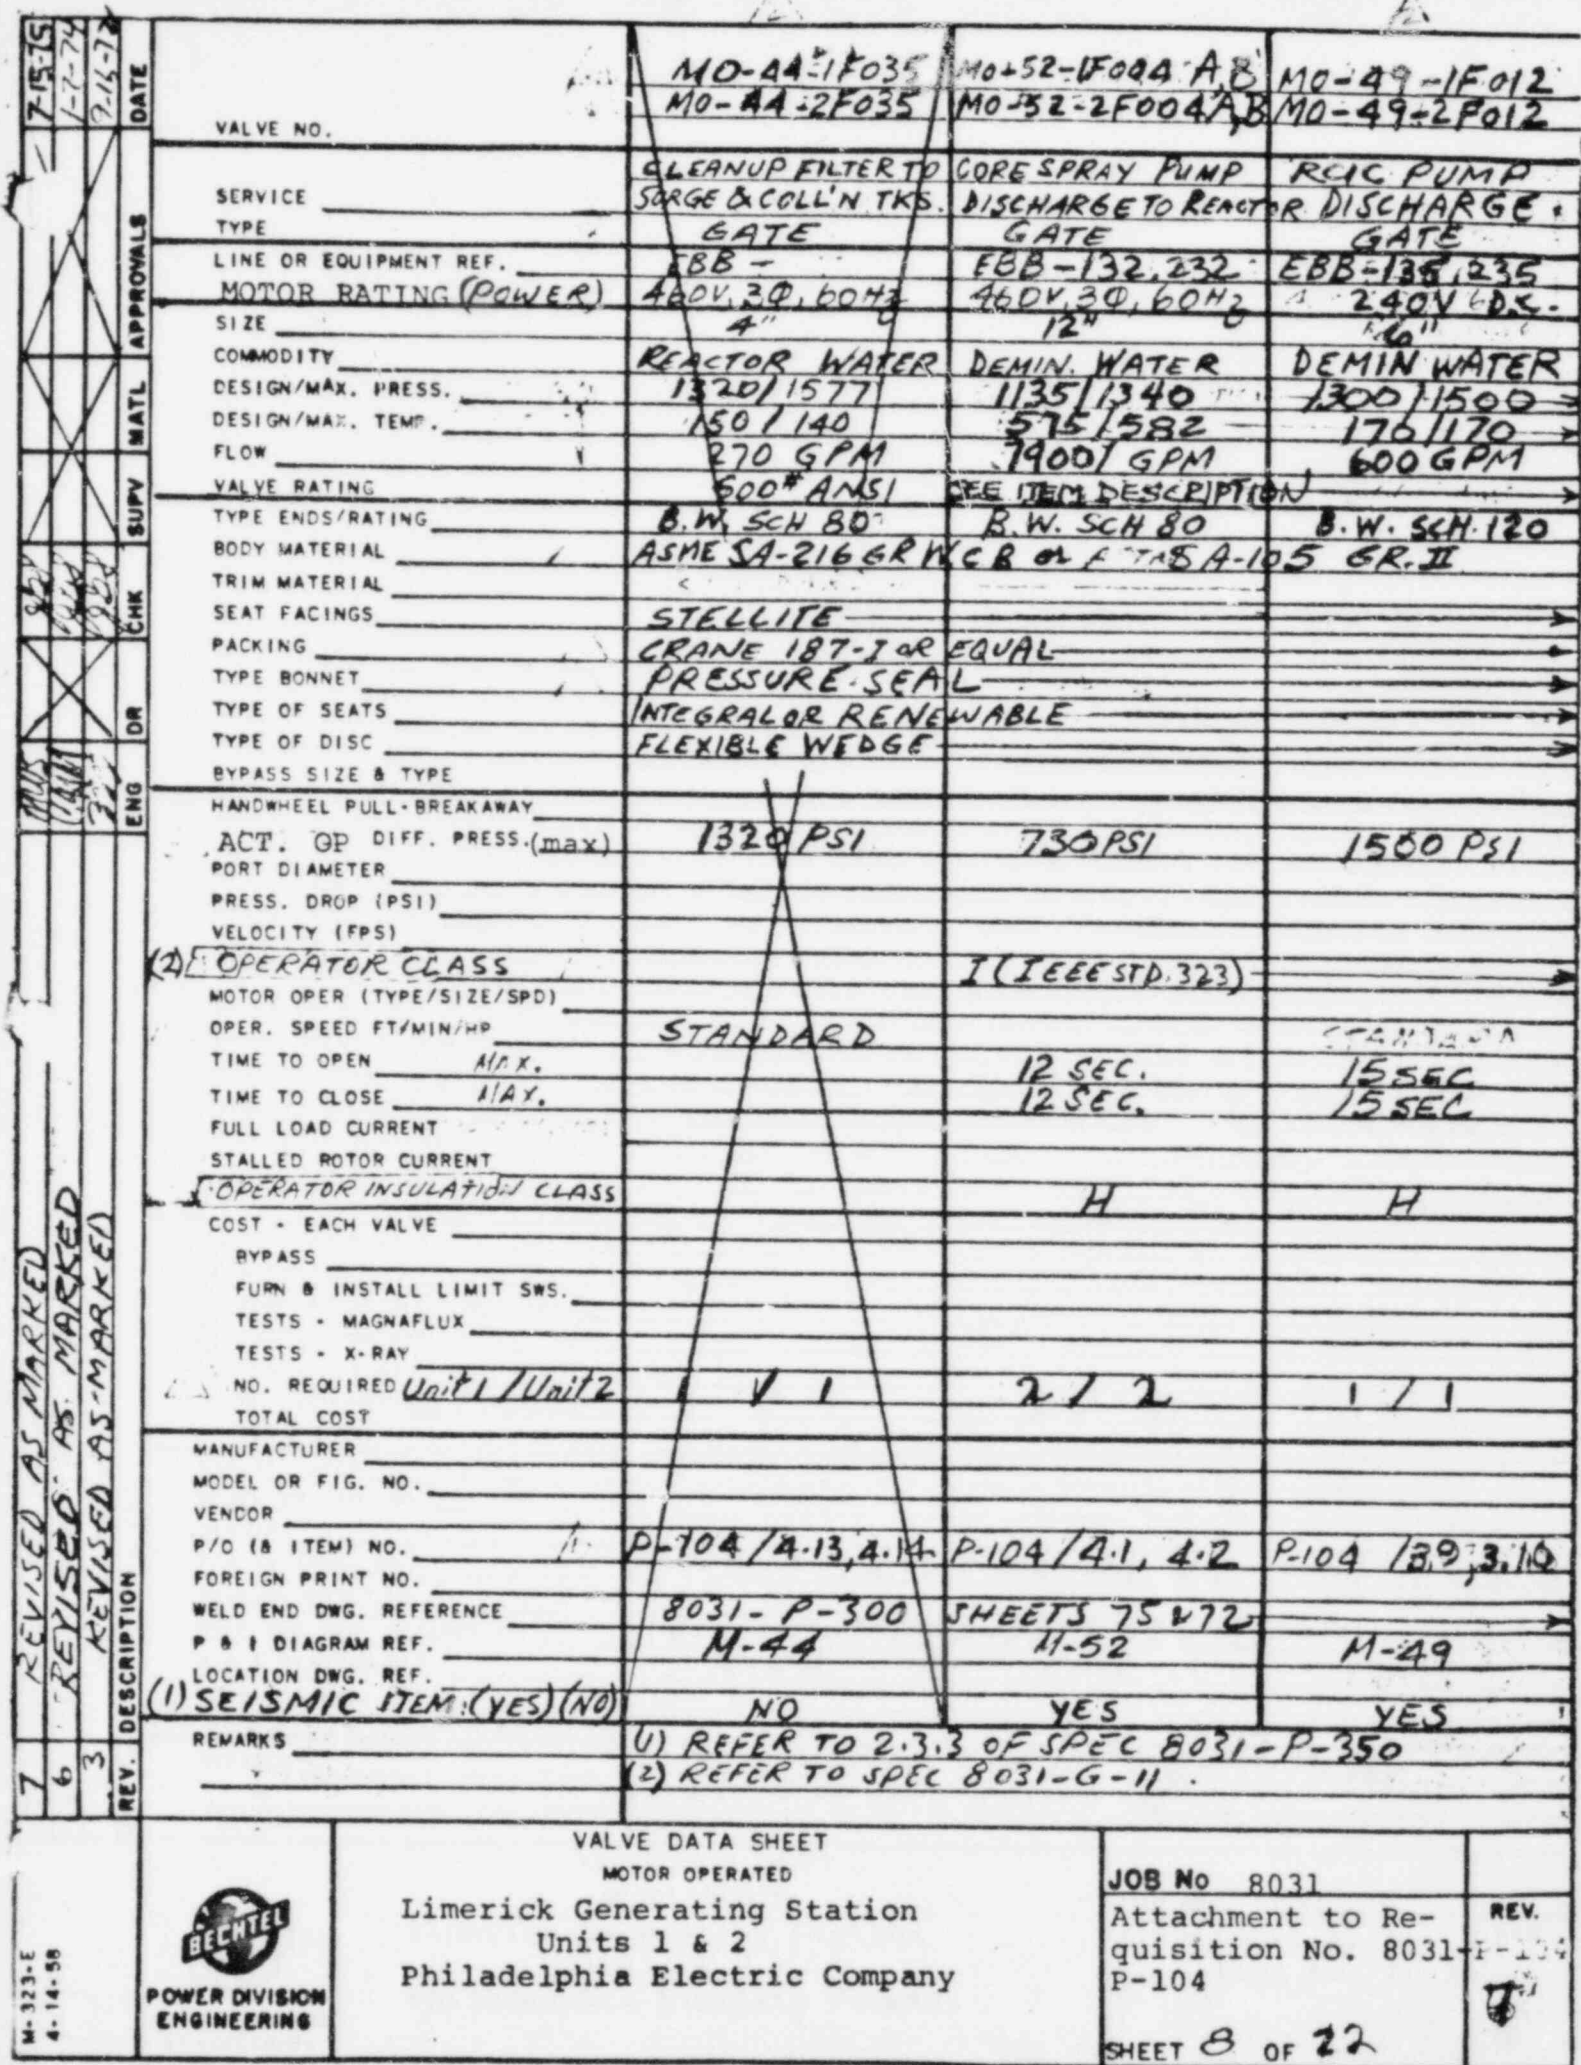 MO-44-1F035 MO-52-1F004 A,B MO-49-1F012
VALVE NO. MO-44-2F035 MO-52-2F004 A,B MO-49-2F012
CLEANUP FILTER TO CORE SPRAY PUMP RCIC PUMP
SERVICE SORGE & COLL'N TKS. DISCHARGE TO REACTOR DISCHARGE.
TYPE GATE GATE GATE
LINE OR EQUIPMENT REF. EBB- EBB-132,232 EBB-135,235
MOTOR RATING (POWER) 460V, 3Φ, 60Hz 460V, 3Φ, 60Hz 240V D.C.
SIZE 4" 12" 6"
COMMODITY REACTOR WATER DEMIN. WATER DEMIN WATER
DESIGN/MAX. PRESS. 1320/1577 1135/1340 1300/1500
DESIGN/MAX. TEMP. 150/140 575/582 170/170
FLOW 270 GPM 7900/ GPM 600 GPM
VALVE RATING 600# ANSI SEE ITEM DESCRIPTION
TYPE ENDS/RATING B.W. SCH 80 B.W. SCH 80 B.W. SCH. 120
BODY MATERIAL ASME SA-216 GR WCB or A-105 GR. II
TRIM MATERIAL
SEAT FACINGS STELLITE
PACKING CRANE 187-I OR EQUAL
TYPE BONNET PRESSURE SEAL
TYPE OF SEATS INTEGRAL OR RENEWABLE
TYPE OF DISC FLEXIBLE WEDGE
BYPASS SIZE & TYPE
HANDWHEEL PULL-BREAKAWAY
ACT. OP DIFF. PRESS.(max) 1320 PSI 730 PSI 1500 PSI
PORT DIAMETER
PRESS. DROP (PSI)
VELOCITY (FPS)
(2) OPERATOR CLASS I (IEEE STD. 323)
MOTOR OPER (TYPE/SIZE/SPD)
OPER. SPEED FT/MIN/HP STANDARD STANDARD
TIME TO OPEN MAX. 12 SEC. 15 SEC
TIME TO CLOSE MAX. 12 SEC. 15 SEC
FULL LOAD CURRENT
STALLED ROTOR CURRENT
OPERATOR INSULATION CLASS H H
COST - EACH VALVE
BYPASS
FURN & INSTALL LIMIT SWS.
TESTS - MAGNAFLUX
TESTS - X-RAY
NO. REQUIRED Unit 1 / Unit 2 1 / 1 2 / 2 1 / 1
TOTAL COST
MANUFACTURER
MODEL OR FIG. NO.
VENDOR
P/O (& ITEM) NO. P-104 /4.13, 4.14 P-104 /4.1, 4.2 P-104 /3.9, 3.10
FOREIGN PRINT NO.
WELD END DWG. REFERENCE 8031-P-300 SHEETS 75 & 72
P & I DIAGRAM REF. M-44 M-52 M-49
LOCATION DWG. REF.
(1) SEISMIC ITEM: (YES) (NO) NO YES YES
REMARKS (1) REFER TO 2.3.3 OF SPEC 8031-P-350
(2) REFER TO SPEC 8031-G-11.
REV. DESCRIPTION ENG DR CHK SUPV MATL APPROVALS DATE
7 REVISED AS MARKED 7-15-75
6 REVISED AS MARKED 1-7-74
3 REVISED AS-MARKED
M-323-E
4-14-58
BECHTEL
POWER DIVISION
ENGINEERING
VALVE DATA SHEET
MOTOR OPERATED
Limerick Generating Station
Units 1 & 2
Philadelphia Electric Company
JOB No 8031
Attachment to Re-
quisition No. 8031-
P-104
SHEET 8 OF 22
REV.
7